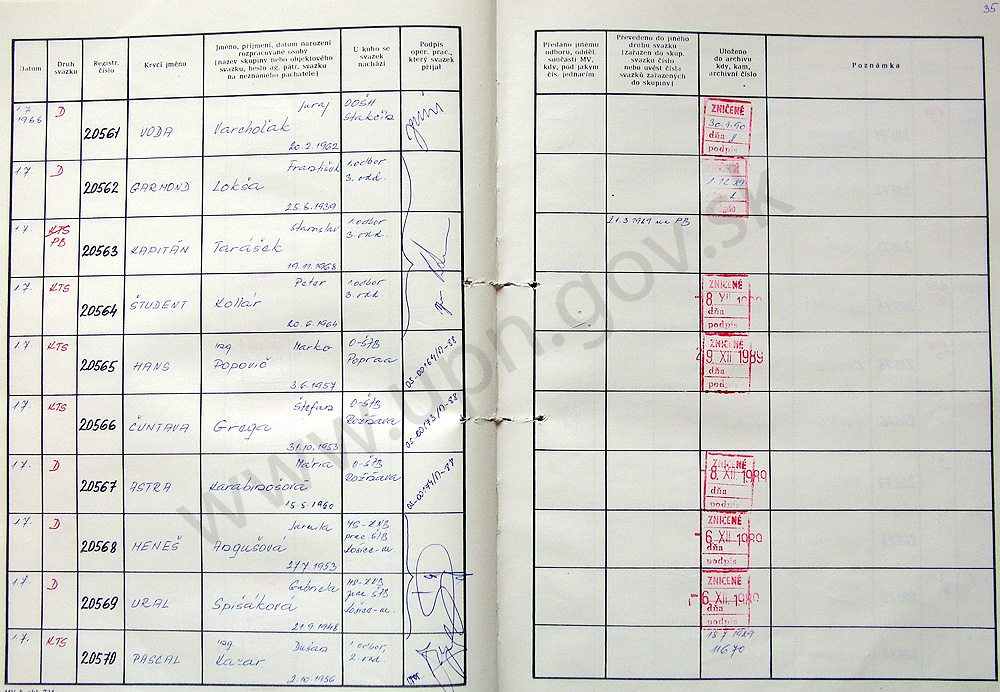 35
Datum
Druh svazku
Registr. číslo
Krycí jméno
Jméno, příjmení, datum narození rozpracované osoby (název skupiny nebo objektového svazku, heslo ag. patr. svazku na neznámého pachatele)
U koho se svazek nachází
Podpis oper. prac., který svazek přijal
Předáno jinému odboru, odděl. součásti MV, kdy, pod jakým čís. jednacím
Převedeno do jiného druhu svazku (zařazen do skup. svazku číslo nebo uvést čísla svazků zařazených do skupiny)
Uloženo do archivu kdy, kam, archivní číslo
Poznámka
17. 1966 D 20561 VODA Juraj Varchoľak 20.2.1962 OOŠH Stakčín
ZNIČENÉ
30-1-90
dňa
podpis
17. D 20562 GARMOND František Lokša 25.6.1939 1.odbor 3. odd.
1.12.89
17. KTS PB 20563 KAPITÁN Stanislav Tarášek 19.11.1968 1.odbor 3. odd.
21.3 1989 na PB
17. KTS 20564 ŠTUDENT Peter Kollár 20.6.1964 1.odbor 3. odd.
ZNIČENÉ
8 XII 1989
dňa
podpis
17. KTS 20565 HANS Ing. Marko Popovič 3.6.1957 O-ŠTB Poprad OS-00164/A-88
ZNIČENÉ
29 XII 1989
dňa
podp
17. KTS 20566 ČUNTAVA Štefan Grega 31.10.1953 O-ŠTB Rožňava OS-00173/A-88
17. D 20567 ASTRA Mária Karabinošová 15.5.1960 O-ŠTB Rožňava
ZNIČENÉ
8. XII. 1989
dňa
podpis
17. D 20568 HENEŠ Jarmila Angušová 27.7.1953 MS-ZNB prac. ŠTB Košice-m.
ZNIČENÉ
6 XII 1989
dňa
podpis
17. D 20569 URAL Gabriela Spišáková 21.9.1948 MS-ZNB prac ŠTB Košice-m.
ZNIČENÉ
6 XII 1989
dňa
podpis
17. KTS 20570 PASCAL Ing. Dušan Kazar 2.10.1956 1.odbor, 2. odd.
13.7 1989
11670
www.upn.gov.sk